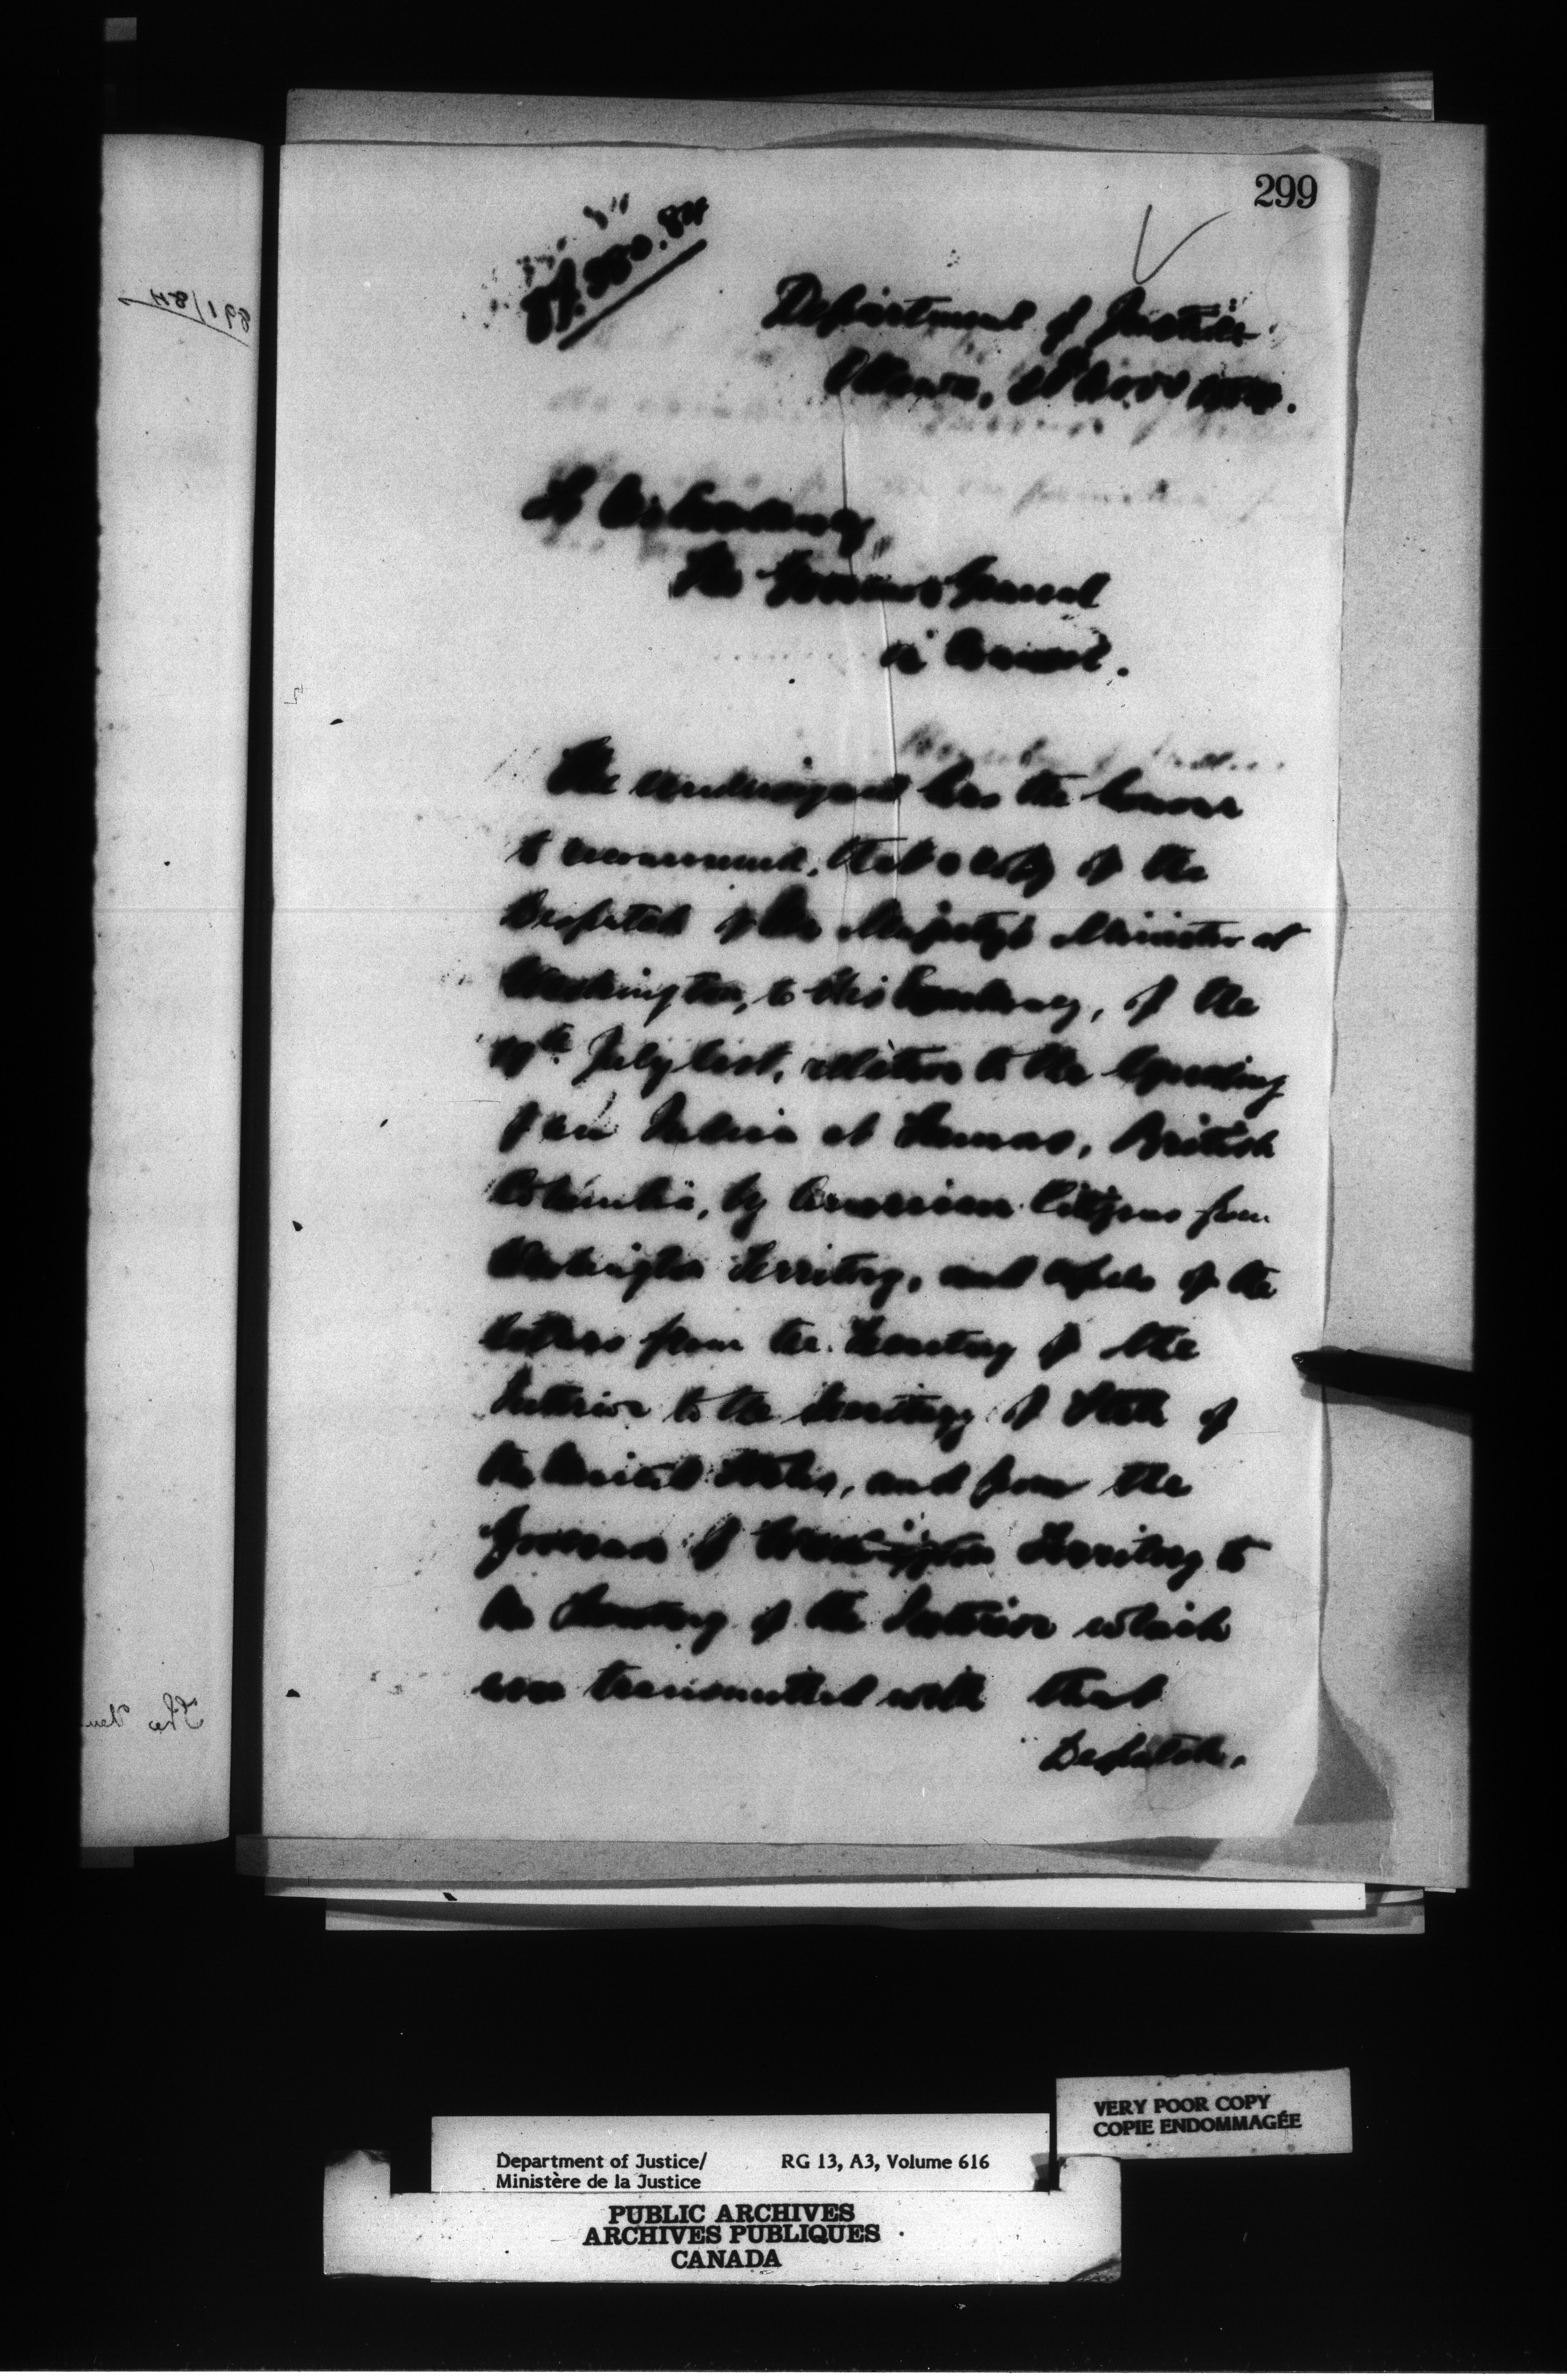 299
Department of Justice
Ottawa,
To His Excellency,
The Governor General
in Council.
The undersigned has the honour
to recommend, that a copy of the
Despatch of Her Majesty's Minister at
Washington, to His Excellency, of the
July last, relative to the lynching
of an Indian at Sumas, British
Columbia, by American Citizens from
Washington Territory, and copies of the
letters from the Secretary of the
Interior to the Secretary of State of
the United States, and from the
Governor of Washington Territory to
the Secretary of the Interior which
were transmitted with that
Despatch,
891/84
The
VERY POOR COPY
COPIE ENDOMMAGÉE
Department of Justice/ RG 13, A3, Volume 616
Ministère de la Justice
PUBLIC ARCHIVES
ARCHIVES PUBLIQUES
CANADA